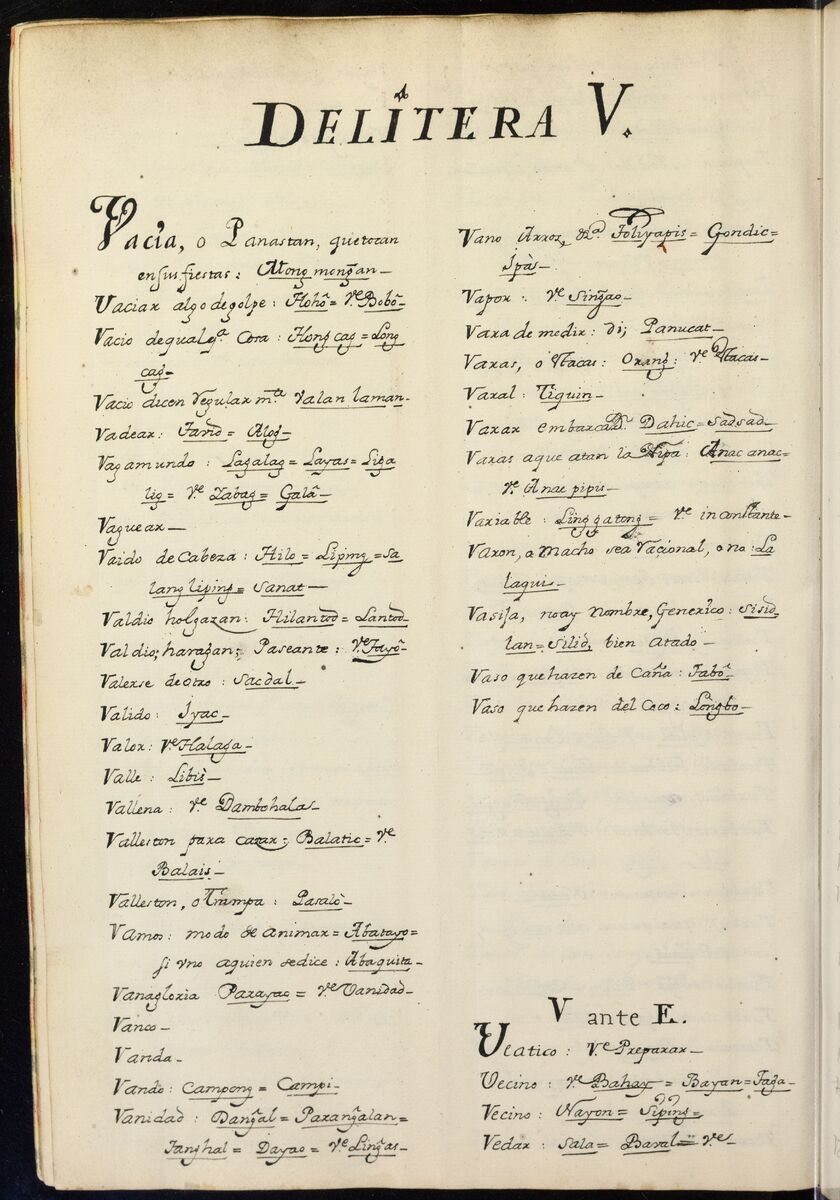 DE LA LITERA V.
Vacia, o Panastan, que tocan
en sus fiestas: Mong mong̃an_
Vaciar algo de golpe: Hohô= Ve Bobô_
Vacio de qualqa. Cosa: Hong cag=Long
cag_
Vacio dicen vegular mte Valan laman_
Vadear: Tavid= Alog_
Vagamundo: Lagalag= Layas= Liga
lig= ve Zabag= Galâ_
Vaguear_
Vaido de Cabeza: Hilo= Liping=sa
lang liping= sanat_
Valdio holgazan: Hilantod= Lantod_
Valdio; haragan; Paseante: Ve Tayô_
Valerse de otro: sacdal_
Valido: Iyac_
Valor: Ve Halaga_
Valle: Libìs_
Vallena: Ve Dambohala_
Valleston para cazar: Balatic= Ve
Balais_
Valleston, o Trampa: Pasalò_
Vamos: modo de animar= Abatayo=
si vno aquien se dice: Abaquita_
Vanagloria Parayao= Ve Vanidad_
Vanco_
Vanda_
Vando: Campong= Campi_
Vanidad: Dang̃al= Parang̃alan=
Tanghal= Dayao= Ve Ling̃as_
Vano Arroz, &a. Toliyapis= Gondic=
Ipàs_
Vapor: Ve Sing̃ao_
Vara de medir: di; Panucat_
Varas, o Etacas: Orang: Ve Etacas_
Varal: Tiquin_
Varar embarcaon. Dahic= sadsad_
Varas a que atan la Nipa: Anac anac=
ve Anac pipis_
Variable: Linggatong= Ve inconstante_
Varon, o Macho sea Racional, o no: La
laqui_
Vasija, no ay Nombre, Generico: sisid
lan= silid, bien atado_
Vaso que hazen de Caña: Tabô_
Vaso que hazen del Coco: Longbo_
V ante E.
Veatico: Ve Preparar_
Vecino: ve Bahay= Bayan=Taga_
Vecino: Nayon= Siping=
Vedar: Sala= Bawal= Ve_